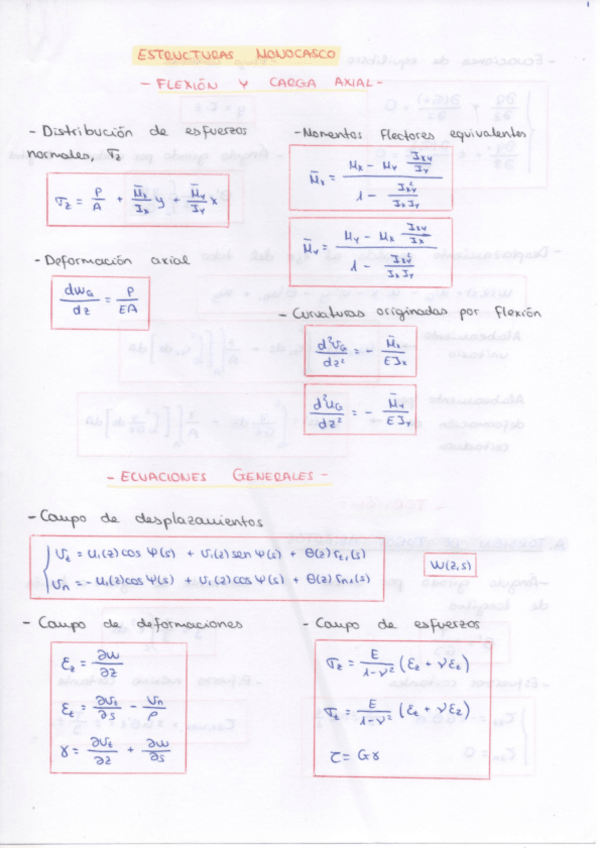 ESTRUCTURAS MONOCASCO
- FLEXIÓN Y CARGA AXIAL -
- Distribución de esfuerzos
normales, σz
σz = P/A + M̄x/Ix y + M̄y/Iy x
- Momentos flectores equivalentes
M̄x = (Mx - My Ixy/Iy) / (1 - Ixy²/(Ix Iy))
M̄y = (My - Mx Ixy/Ix) / (1 - Ixy²/(Ix Iy))
- Deformación axial
dwG/dz = P/EA
- Curvaturas originadas por flexión
d²vG/dz² = - M̄x/EIx
d²uG/dz² = - M̄y/EIy
- ECUACIONES GENERALES -
- Campo de desplazamientos
vt = u1(z) cos ψ(s) + v1(z) sen ψ(s) + θ(z) rt1(s)
vn = - u1(z) cos ψ(s) + v1(z) cos ψ(s) + θ(z) rn1(s)
w(z,s)
- Campo de deformaciones
εz = ∂w/∂z
εt = ∂vt/∂s - vn/ρ
γ = ∂vt/∂z + ∂w/∂s
- Campo de esfuerzos
σz = E/(1-ν²) (εz + νεt)
σt = E/(1-ν²) (εt + νεz)
τ = Gγ